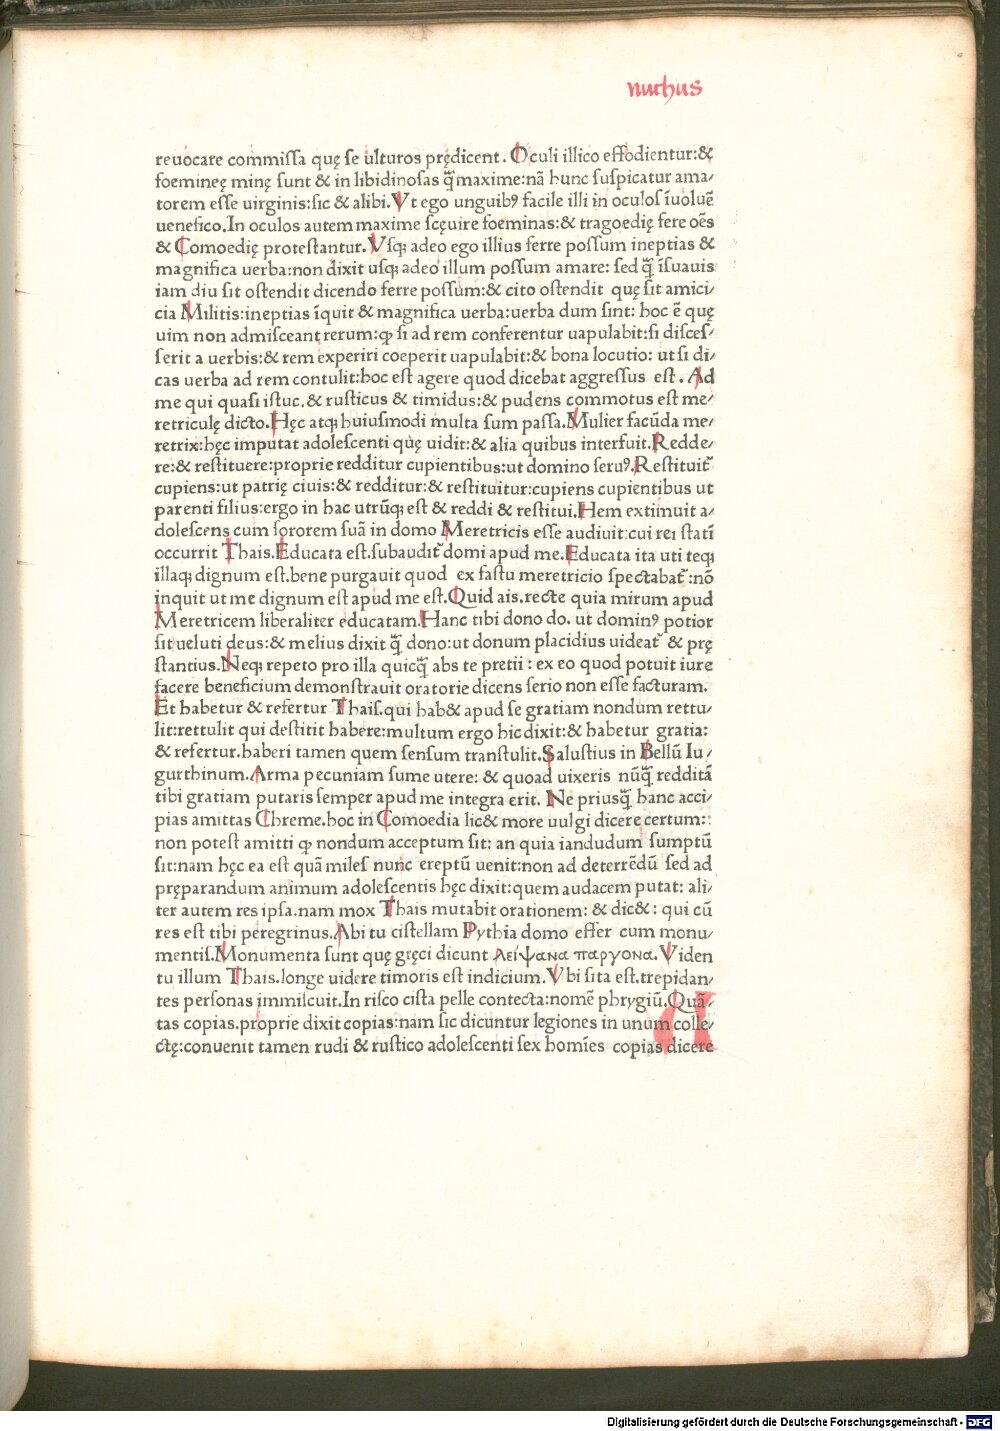 nuchus
reuocare commiſſa quę ſe ulturos prędicent. Oculi illico effodientur:&
foemineę minę ſunt & in libidinoſas q̄ maxime:nā hunc ſuſpicatur ama-
torem eſſe uirginis:ſic & alibi. Vt ego unguibꝰ facile illi in oculoſ īuoluē
uenefico. In oculos autem maxime ſcęuire foeminas:& tragoedię fere oēs
& Comoedię proteſtantur. Vſqꝫ adeo ego illius ferre poſſum ineptias &
magnifica uerba:non dixit uſqꝫ adeo illum poſſum amare: ſed q̄ īſuauis
iam diu ſit oſtendit dicendo ferre poſſum:& cito oſtendit quę ſit amici/
cia Militis:ineptias īquit & magnifica uerba:uerba dum ſint: hoc ē quę
uim non admiſceant rerum:ꝙ ſi ad rem conferentur uapulabit:ſi diſceſ/
ſerit a uerbis:& rem experiri coeperit uapulabit:& bona locutio: ut ſi di/
cas uerba ad rem contulit:hoc eſt agere quod dicebat aggreſſus eſt. Ad
me qui quaſi iſtuc. & ruſticus & timidus:& pudens commotus eſt me/
retriculę dicto. Hęc atqꝫ huiuſmodi multa ſum paſſa. Mulier facūda me/
retrix:hęc imputat adoleſcenti quę uidit:& alia quibus interfuit. Redde/
re:& reſtituere:proprie redditur cupientibus:ut domino ſeruꝰ. Reſtituit᷑
cupiens:ut patrię ciuis:& redditur:& reſtituitur:cupiens cupientibus ut
parenti filius:ergo in hac utrūqꝫ eſt & reddi & reſtitui. Hem extimuit a/
doleſcens cum ſororem ſuā in domo Meretricis eſſe audiuit:cui rei ſtatī
occurrit Thais. Educata eſt.ſubaudit᷑ domi apud me. Educata ita uti teqꝫ
illaqꝫ dignum eſt.bene purgauit quod ex faſtu meretricio ſpectabat᷑:nō
inquit ut me dignum eſt apud me eſt. Quid ais.recte quia mirum apud
Meretricem liberaliter educatam. Hanc tibi dono do. ut dominꝰ potior
ſit ueluti deus:& melius dixit q̄ dono:ut donum placidius uideat᷑ & prę
ſtantius. Neqꝫ repeto pro illa quicq̄ abs te pretii : ex eo quod potuit iure
facere beneficium demonſtrauit oratorie dicens ſerio non eſſe facturam.
Et habetur & refertur Thaiſ.qui hab& apud ſe gratiam nondum rettu/
lit:rettulit qui deſtitit habere:multum ergo hic dixit:& habetur gratia:
& refertur.haberi tamen quem ſenſum tranſtulit. Saluſtius in Bellū Iu/
gurthinum. Arma pecuniam ſume utere: & quoad uixeris nūq̄ redditā
tibi gratiam putaris ſemper apud me integra erit. Ne priusq̄ hanc acci/
pias amittas Chreme.hoc in Comoedia lic& more uulgi dicere certum:
non poteſt amitti ꝙ nondum acceptum ſit: an quia iandudum ſumptū
ſit:nam hęc ea eſt quā mileſ nunc ereptū uenit:non ad deterrēdū ſed ad
pręparandum animum adoleſcentis hęc dixit:quem audacem putat: ali/
ter autem res ipſa.nam mox Thais mutabit orationem: & dic&: qui cū
res eſt tibi peregrinus. Abi tu ciſtellam Pythia domo effer cum monu/
mentiſ. Monumenta ſunt quę gręci dicunt λείψανα παργονα. Viden
tu illum Thais.longe uidere timoris eſt indicium. Vbi ſita eſt.trepidan/
tes perſonas immiſcuit. In riſco ciſta pelle contecta:nomē phrygiū. Quā/
tas copias.proprie dixit copias:nam ſic dicuntur legiones in unum colle/
ctę:conuenit tamen rudi & ruſtico adoleſcenti ſex homīes copias dicere
Digitalisierung gefördert durch die Deutsche Forschungsgemeinschaft - DFG